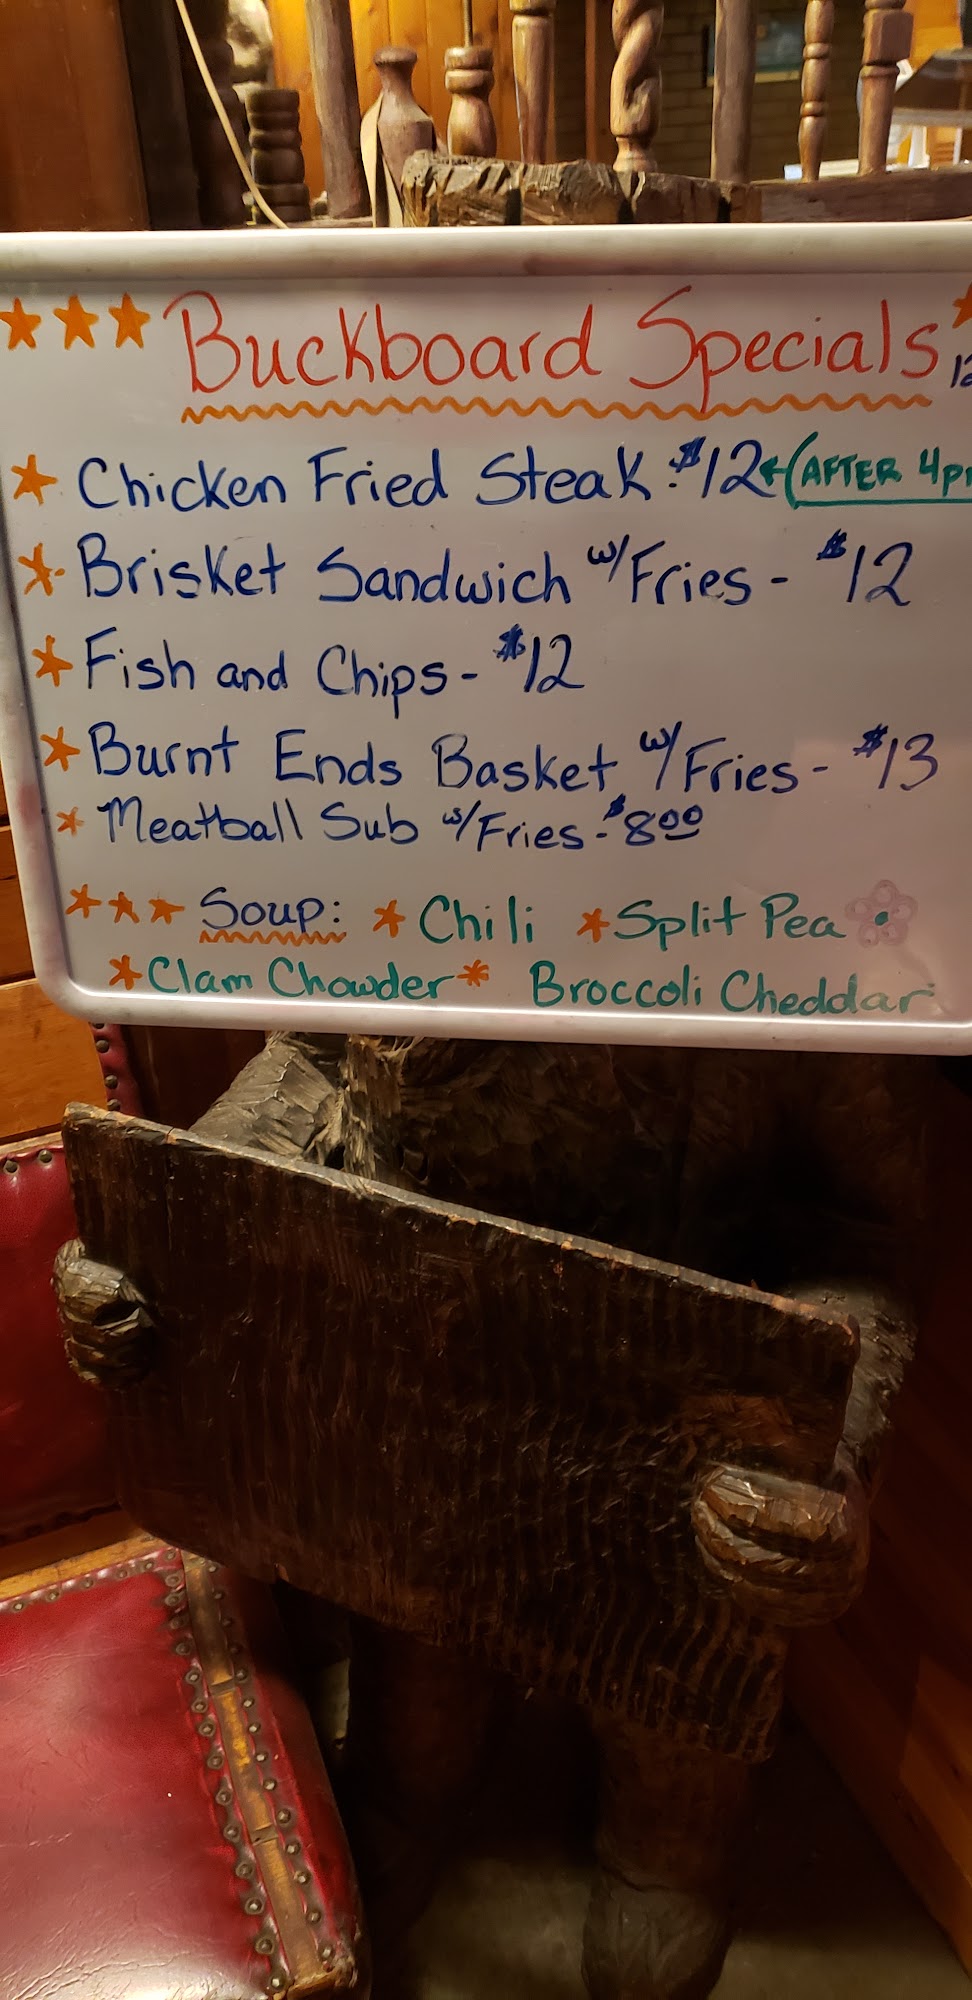 Buckboard Specials
Chicken Fried Steak - $12 (AFTER 4pm
Brisket Sandwich w/Fries - $12
Fish and Chips - $12
Burnt Ends Basket w/Fries - $13
Meatball Sub w/Fries - $8.00
Soup: Chili Split Pea
Clam Chowder Broccoli Cheddar